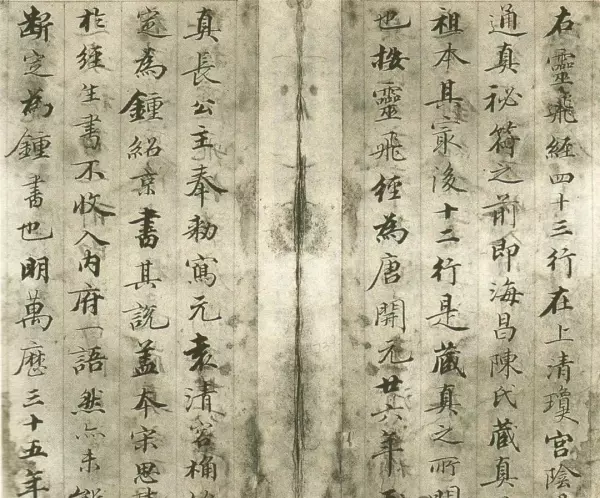 右靈飛經四十三行在上清瓊宮陰
通真祕符之前即海昌陳氏藏真
祖本其冣後十二行是藏真之所
也按靈飛經為唐開元廿六年
真長公主奉勅寫元袁清容桶
定為鍾紹京書其說蓋本宋思
於經生書不收入內府一語然亦未
斷定為鍾書也明萬曆三十五年